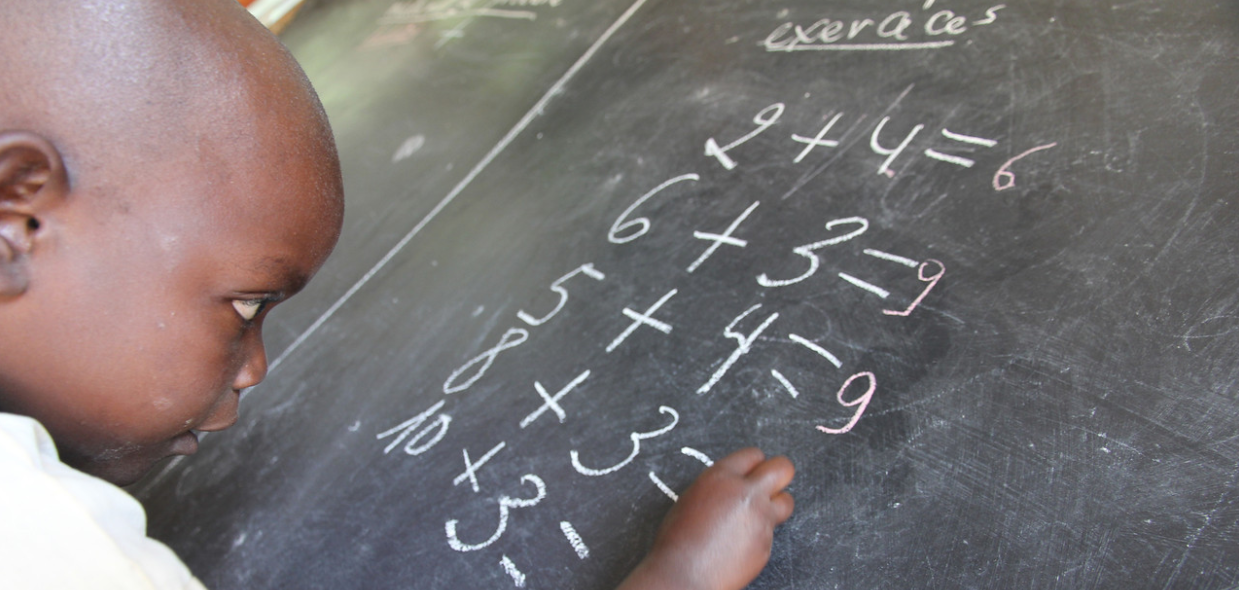 exercices
2 + 4 = 6
6 + 3 = 9
5 + 4 = 9
8 + 3 =
10 + 3 =